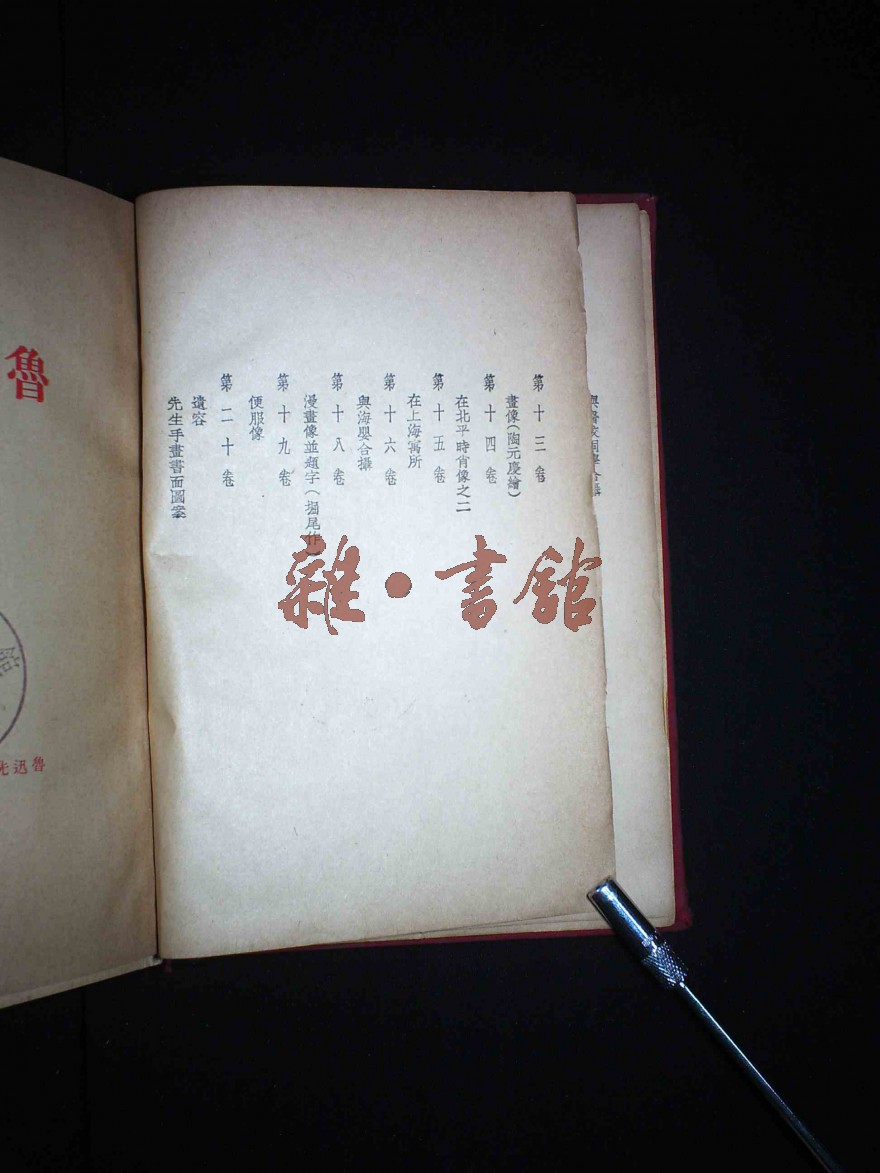 第十三卷
畫像(陶元慶繪)
第十四卷
在北平時肖像之二
第十五卷
在上海寓所
第十六卷
與海嬰合攝
第十八卷
漫畫像並題字(堀尾作)
第十九卷
便服像
第二十卷
遺容
先生手畫書面圖案
雜·書館
魯
魯迅先
館